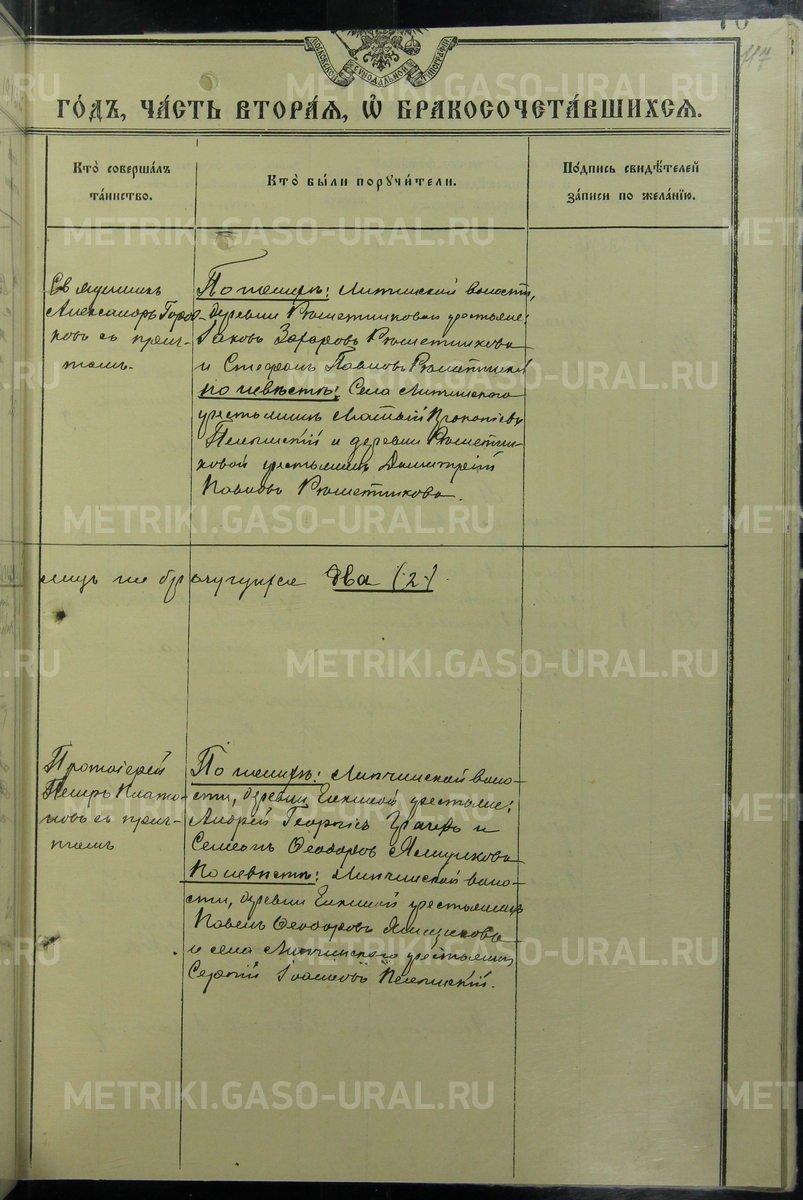 117
МОСКОВСКОЙ СѴНОДАЛЬНОЙ ТИПОГРАФІИ
ГО́ДЪ, ЧА́СТЬ ВТОРА́Я, Ѡ҆ БРАКОСОЧЕТА́ВШИХСЯ.
Кто̀ соверша́лъ
та́инство.
Кто̀ бы́ли порꙋчи́тели.
По́дпись свидѣ́телей
за́писи по жела́нїю.
Священникъ
Александръ Горо-
ковъ съ прич-
томъ.
По женихѣ: Липчинской волости,
деревни Рѣшетниковой крестьяне:
Іаковъ Захаровъ Рѣшетниковъ
и Стефанъ Павловъ Рѣшетников
по невѣстѣ: Села Липчинского
крестьянинъ Матѳей Прокопіевъ
Пелымскій и деревни Рѣшетни-
ковой крестьянинъ Димитрій
Павловъ Рѣшетниковъ.
лицъ не бр ачущихся два (2)
Протоіерей
Петръ Плато-
новъ съ прич-
томъ
По женихѣ: Липчинской воло-
сти, деревни крестьяне:
Андрей Георгіевъ и
Семеонъ Ѳеодоровъ Ямщиковъ
По невѣстѣ: Липчинской воло-
сти, деревни крестьянинъ
Павелъ Ѳеодоровъ Ямщиковъ
и села Липчинского крестьянинъ
Сергій Іоанновъ Пелымскій.
METRIKI.GASO-URAL.RU